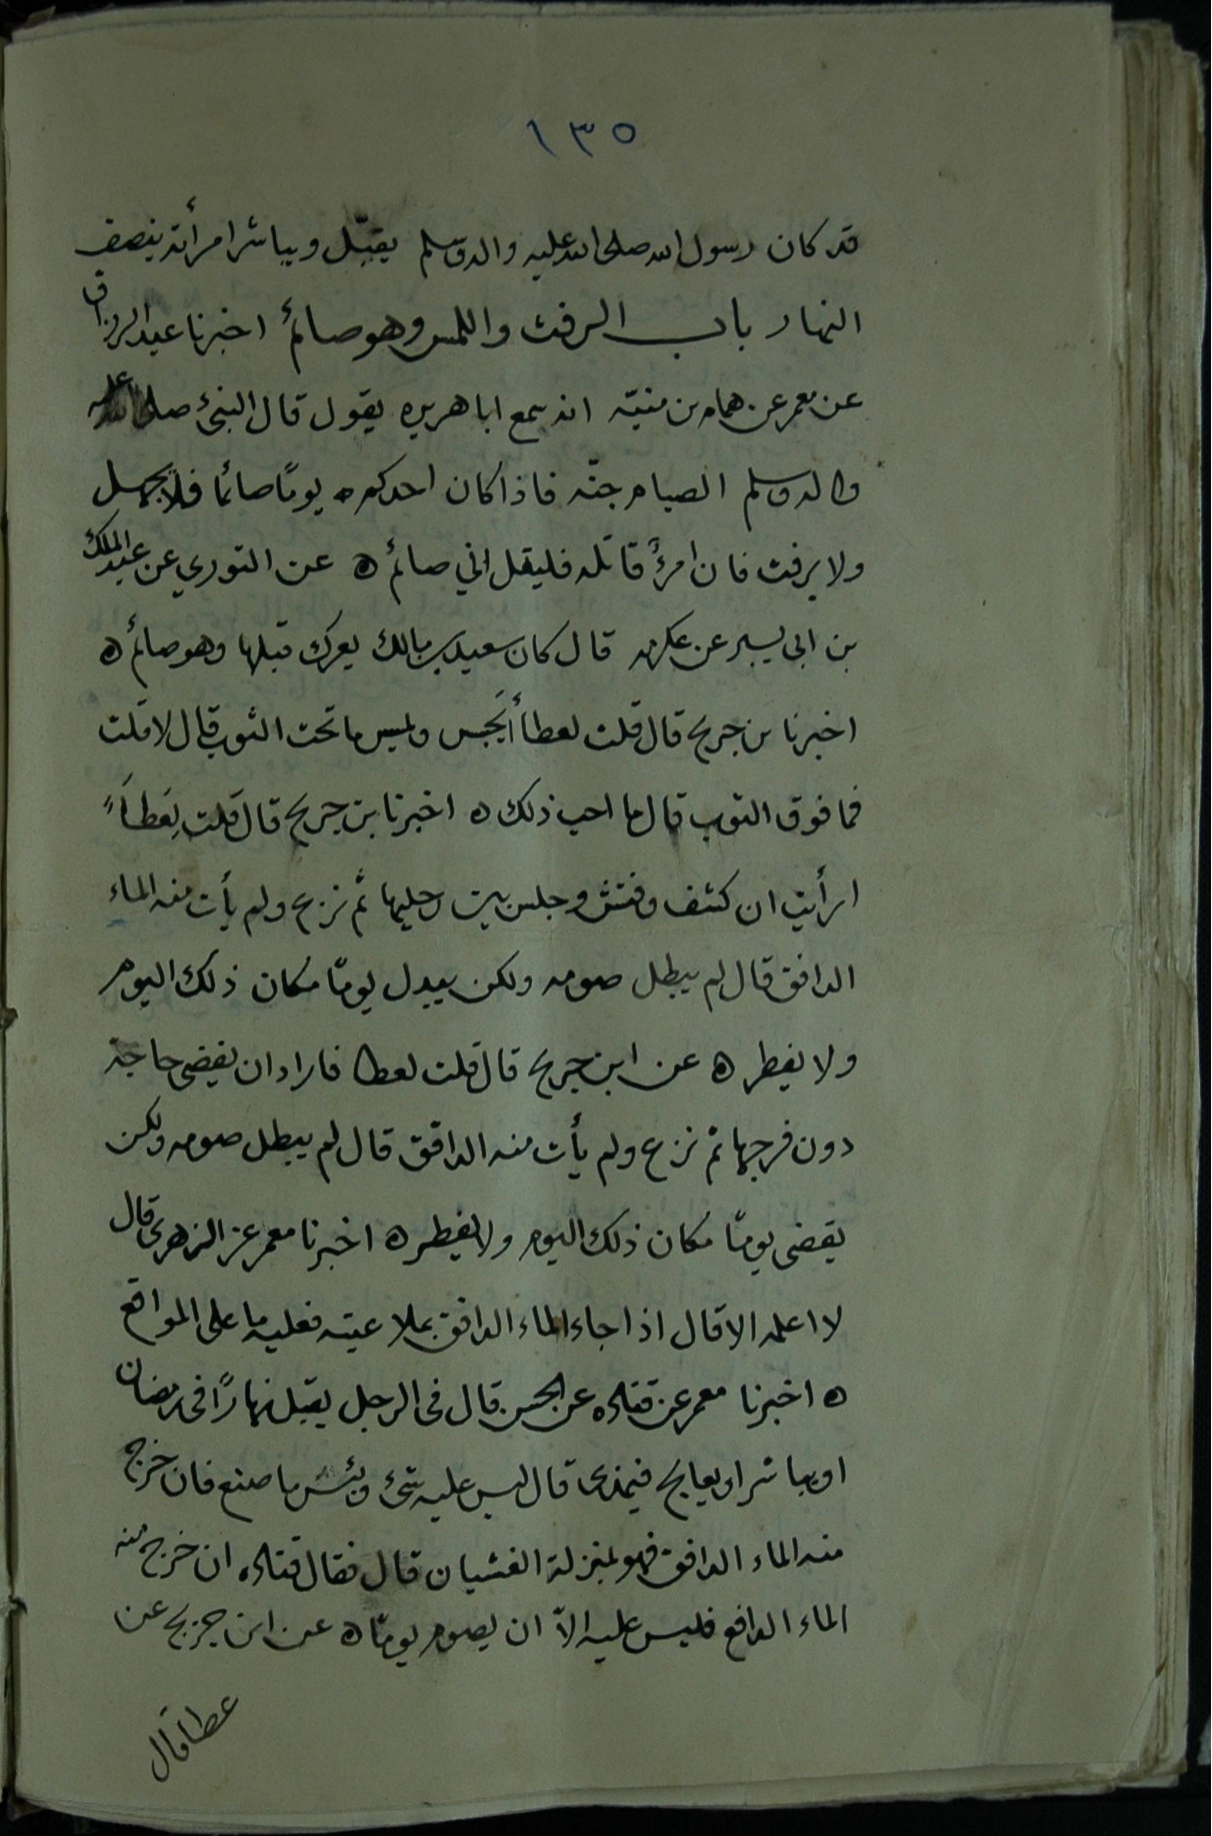 ١٣٥
قد كان رسول الله صلى الله عليه واله وسلم يقبّل ويباشر امرأته ينصف
النهار باب الرفث واللمس وهو صائم اخبرنا عبد الرزاق
عن معمر عن همام بن منبّه انه سمع ابا هريره يقول قال النبئ صلى الله عليه
واله وسلم الصيام جنّه فاذا كان احدكم ه يومًا صائما فلا يجهل
ولا يرفث فان امرؤٌ قاتله فليقل اني صائم ه عن الثوري عن عبد الملك
بن ابى يسير عن عكرمه قال كان سعيد بن مالك يعرك قبلها وهو صائم ه
اخبرنا بن جريج قال قلت لعطا أيجس وليس ما تحت الثوب قال لا قلت
فما فوق الثوب قال ما احب ذلك ه اخبرنا بن جريج قال قلت لعطاءً
ارأيت ان كشف وفتش وجلس بين رجليها ثم نزع ولم يأت منه الماء
الدافق قال لم يبطل صومه ولكن يبدل يومًا مكان ذلك اليوم
ولا يفطر ه عن ابن جريج قال قلت لعطا فاراد ان يقضى حاجة
دون فرجها ثم نزع ولم يأت منه الدافق قال لم يبطل صومه ولكن
يقضى يومًا مكان ذلك اليوم ولا يفطر ه اخبرنا معمر عن الزهرى قال
لا اعلمه الا قال اذا جاء الماء الدافق بملاعبته فعليه ما على المواقع
ه اخبرنا معمر عن قتاده عن الحسن قال فى الرجل يقبل نهارًا فى رمضان
او يباشر او يعالج فيمذى قال ليس عليه شئ وبئس ما صنع فان خرج
منه الماء الدافق فهو بمنزلة الغشيان قال فقال قتاده ان خرج منه
الماء الدافع فليس عليه الاّ ان يصوم يومًا ه عن ابن جريج عن
عطا قال